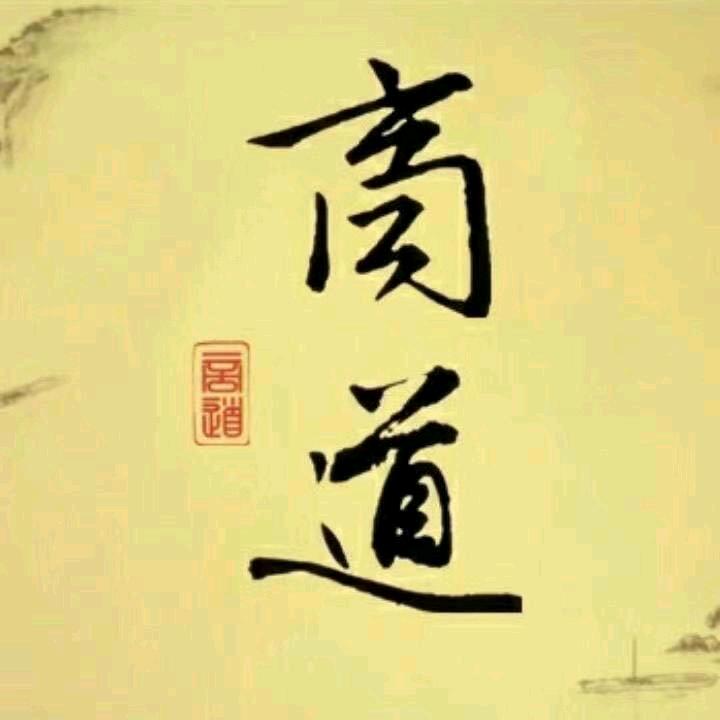 商道
商道